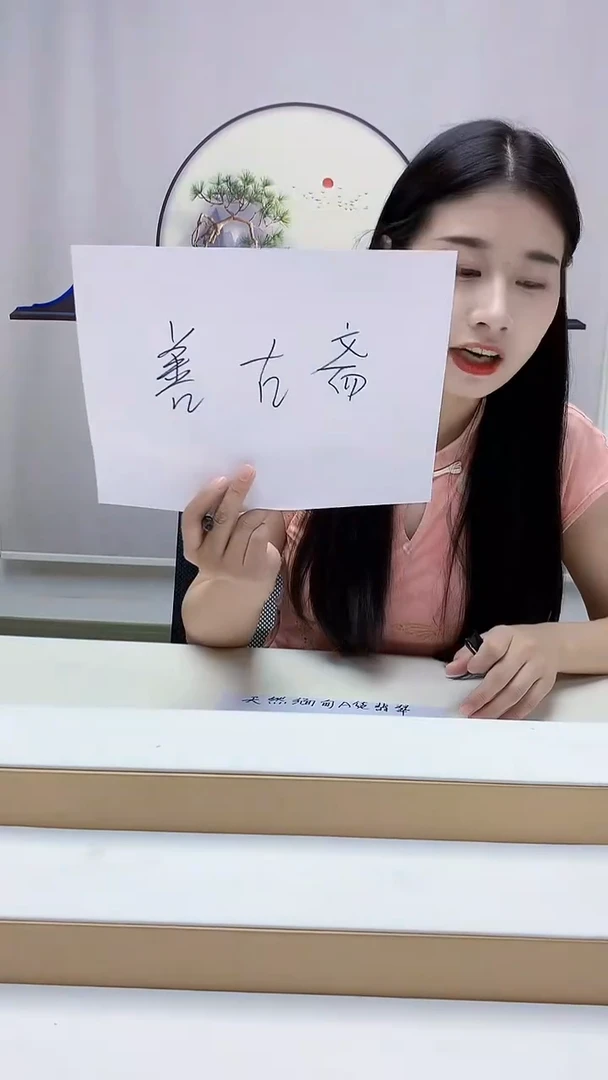 善古斋
天然缅甸A货翡翠